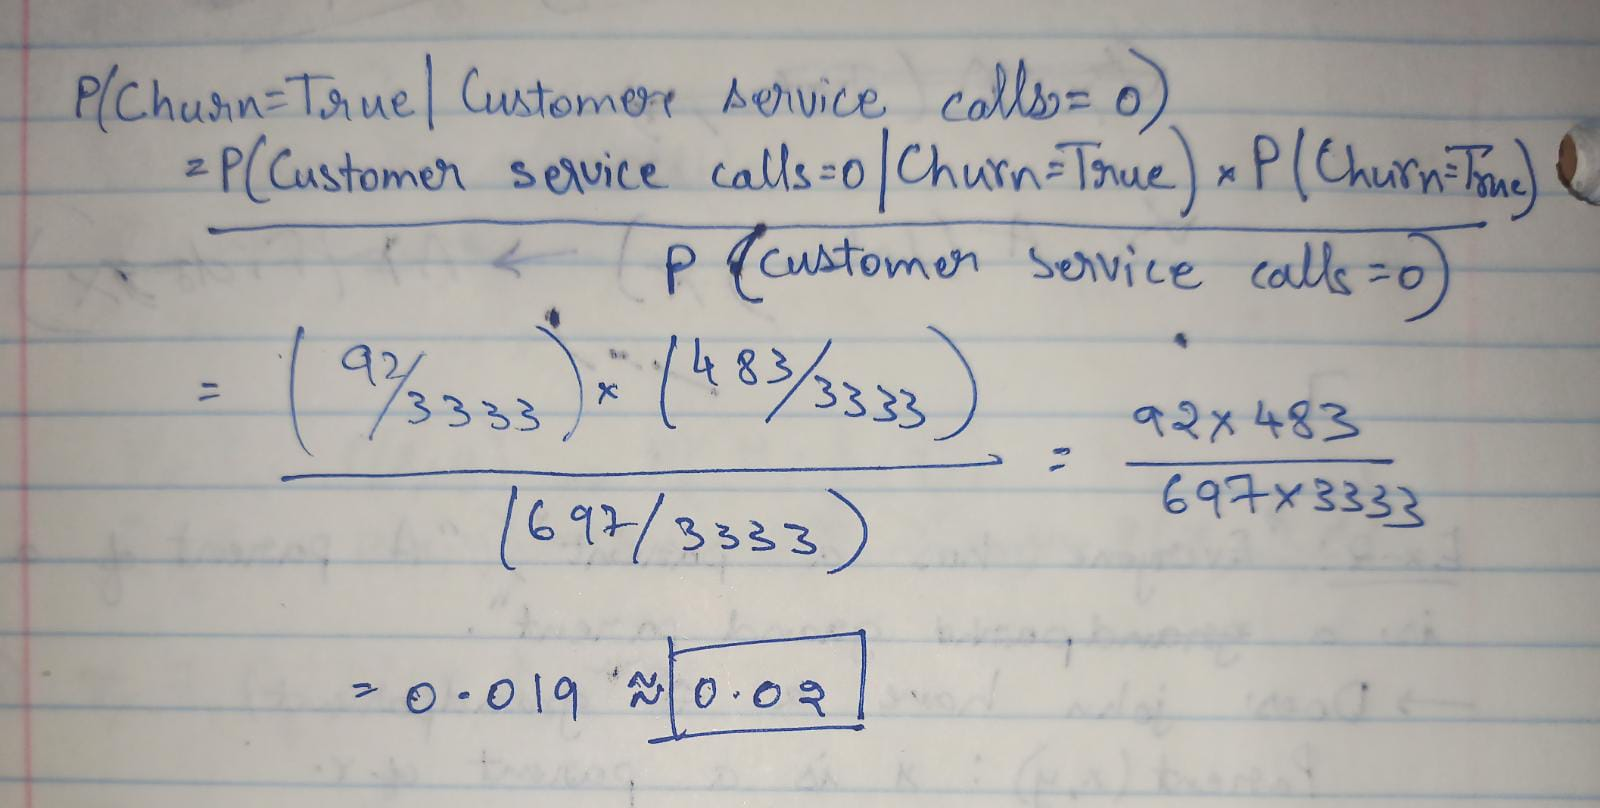 P(Churn=True | Customere service calls = 0)
= P(Customer service calls=0 | Churn=True) × P(Churn=True)
P (customer service calls =0)
= (92/3333) × (483/3333) = 92×483
(697/3333) 697×3333
= 0.019 ≈ 0.02